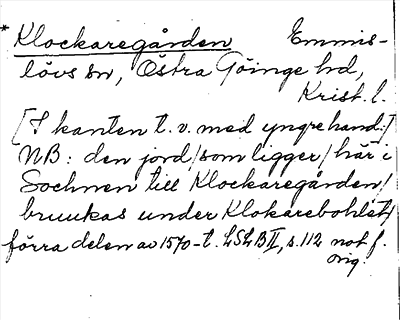 * Klockaregården Emmis-
lövs sn, Östra Göinge hd,
Krist. l.
[I kanten t. v. med yngre hand:]
NB: den jord/som ligger/här i
Sochnen till Klockaregården/
bruukas under Klokarebohlet/
förra delen av 1570-t. LSLB II, s. 112 not f.
orig.